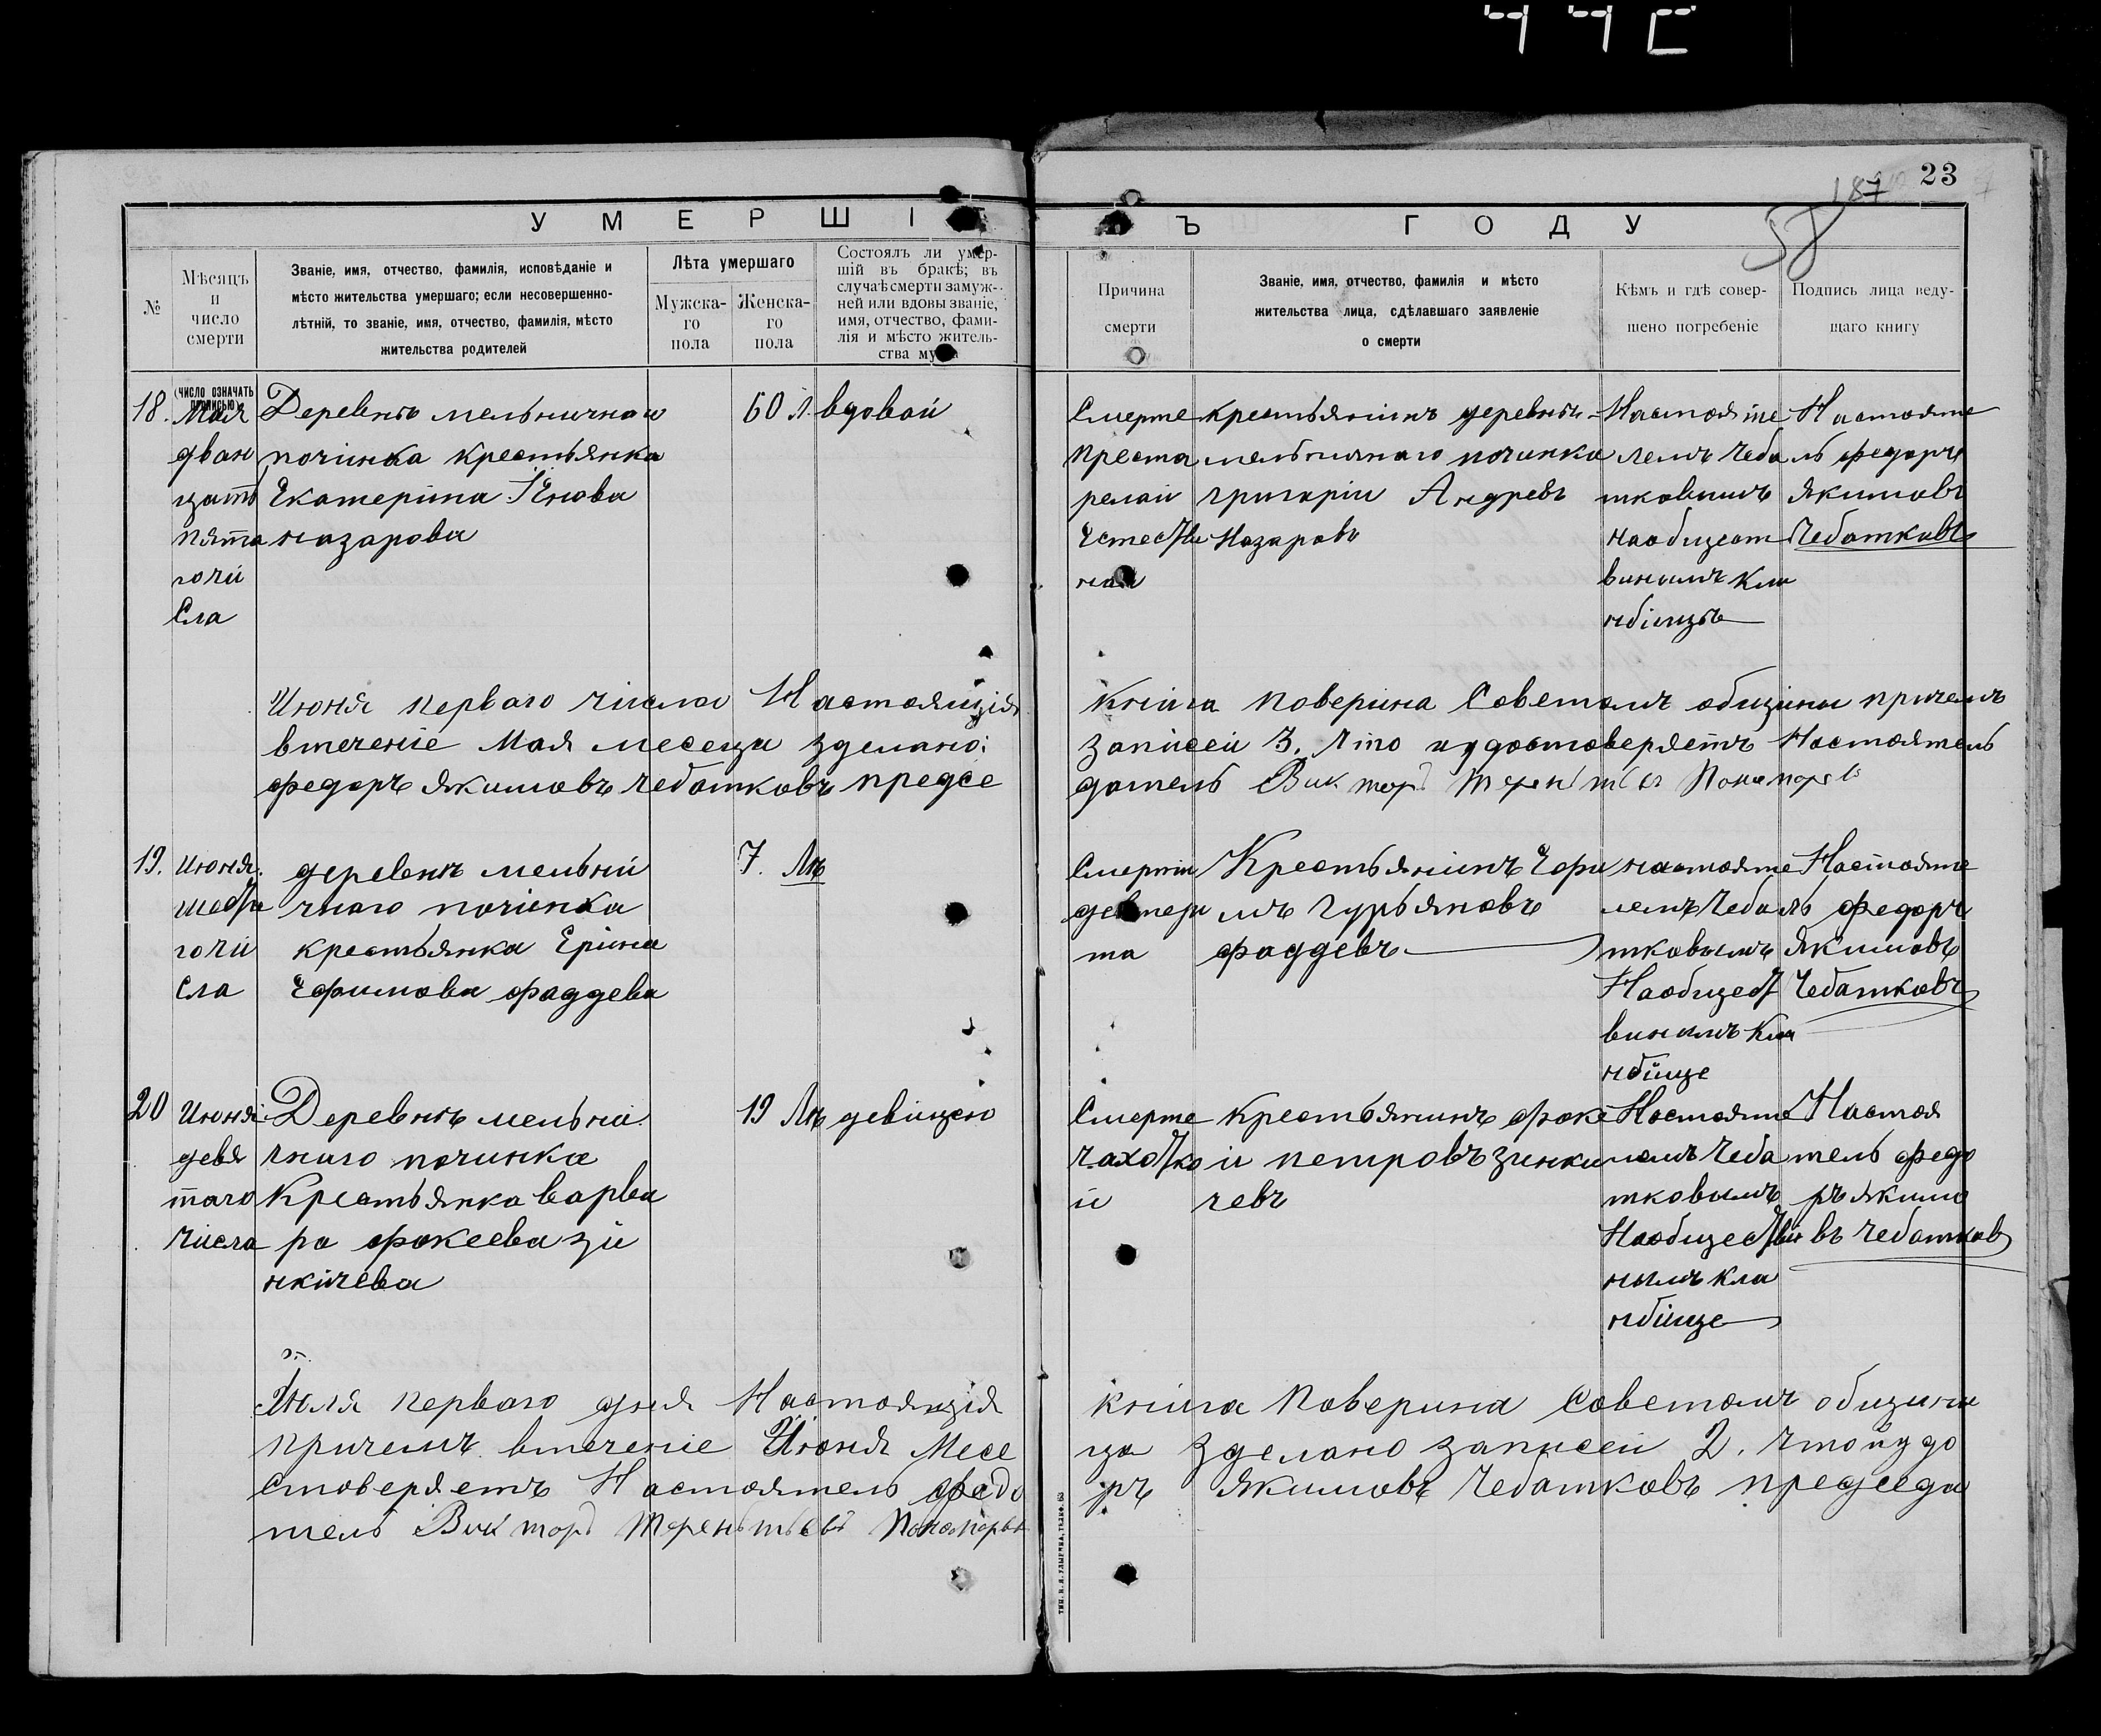 23
187
58
УМЕРШІ
Ъ ГОДУ
№
Мѣсяцъ
и
число
смерти
Званіе, имя, отчество, фамилія, исповѣданіе и
мѣсто жительства умершаго; если несовершенно-
лѣтній, то званіе, имя, отчество, фамилія, мѣсто
жительства родителей
Лѣта умершаго
Мужска-
го
пола
Женска-
го
пола
Состоялъ ли умер-
шій въ бракѣ; въ
случаѣ смерти замуж-
ней или вдовы званіе,
имя, отчество, фами-
лія и мѣсто житель-
ства мужа
Причина
смерти
Званіе, имя, отчество, фамилія и мѣсто
жительства лица, сдѣлавшаго заявленіе
о смерти
Кѣмъ и гдѣ совер-
шено погребеніе
Подпись лица веду-
щаго книгу
(число означать
прописью)
18.
Мая
дван
цатъ
пята
гочи
Сла
Деревнѣ мельничнаи
починка крестьянка
Екатеріна
назарова
60 л.
вдовой
Смерте
преста
релаи
Естеств
ная
крестьянінъ деревнѣ
мельничнаго починка
григаріи Андревъ
Назаровъ
Настояте
лемъ Чеба
тковымъ
наобщест
винымъ Кла
дбищѣ
Настояте
ль федоръ
якимовъ
Чебатковъ
Июня перваго числа Настоящія
втеченіе Мая месеца зделано:
федоръ якимовъ чебатковъ предсе
Кніга поверина Советомъ общины причемъ
записеи 3. что иудостоверяетъ Настоятель
датель Викторъ Терентьевъ Пономоревъ
19.
июня
шеста
гочи
сла
деревнѣ мельни
чнаго починка
крестьянка Еріна
Ефимова фаддева
7. Лѣ
Смерти
девтери
та
Крестьянінъ Ефи
мъ гурьяновъ
фаддевъ
настояте
лемъ Чеба
тковымъ
Наобщест
винымъ Кла
дбище
Настояте
ль федоръ
якимовъ
Чебатковъ
20
Июня
девя
таго
числа
Деревнѣ мельни
чнаго починка
Крестьянка варва
ра фокеева зи
нкичева
19 Лѣ
девіцею
Смерте
чахотко
и
крестьянинъ фоке
и петровъ зинки
чевъ
Настояте
лемъ Чеба
тковымъ
Наобщестьви
нымъ кла
дбище
Настоя
тель федо
ръ якимо
въ чебатковъ
Июля перваго дня Настоящія
причемъ втеченіе Июня Месе
стоверяетъ Настоятель федо
тель Викторъ Терентьевъ Пономорев
книга поверина Советомъ общины
ца зделано записеи 2. что иудо
ръ якимовъ Чебатковъ председа